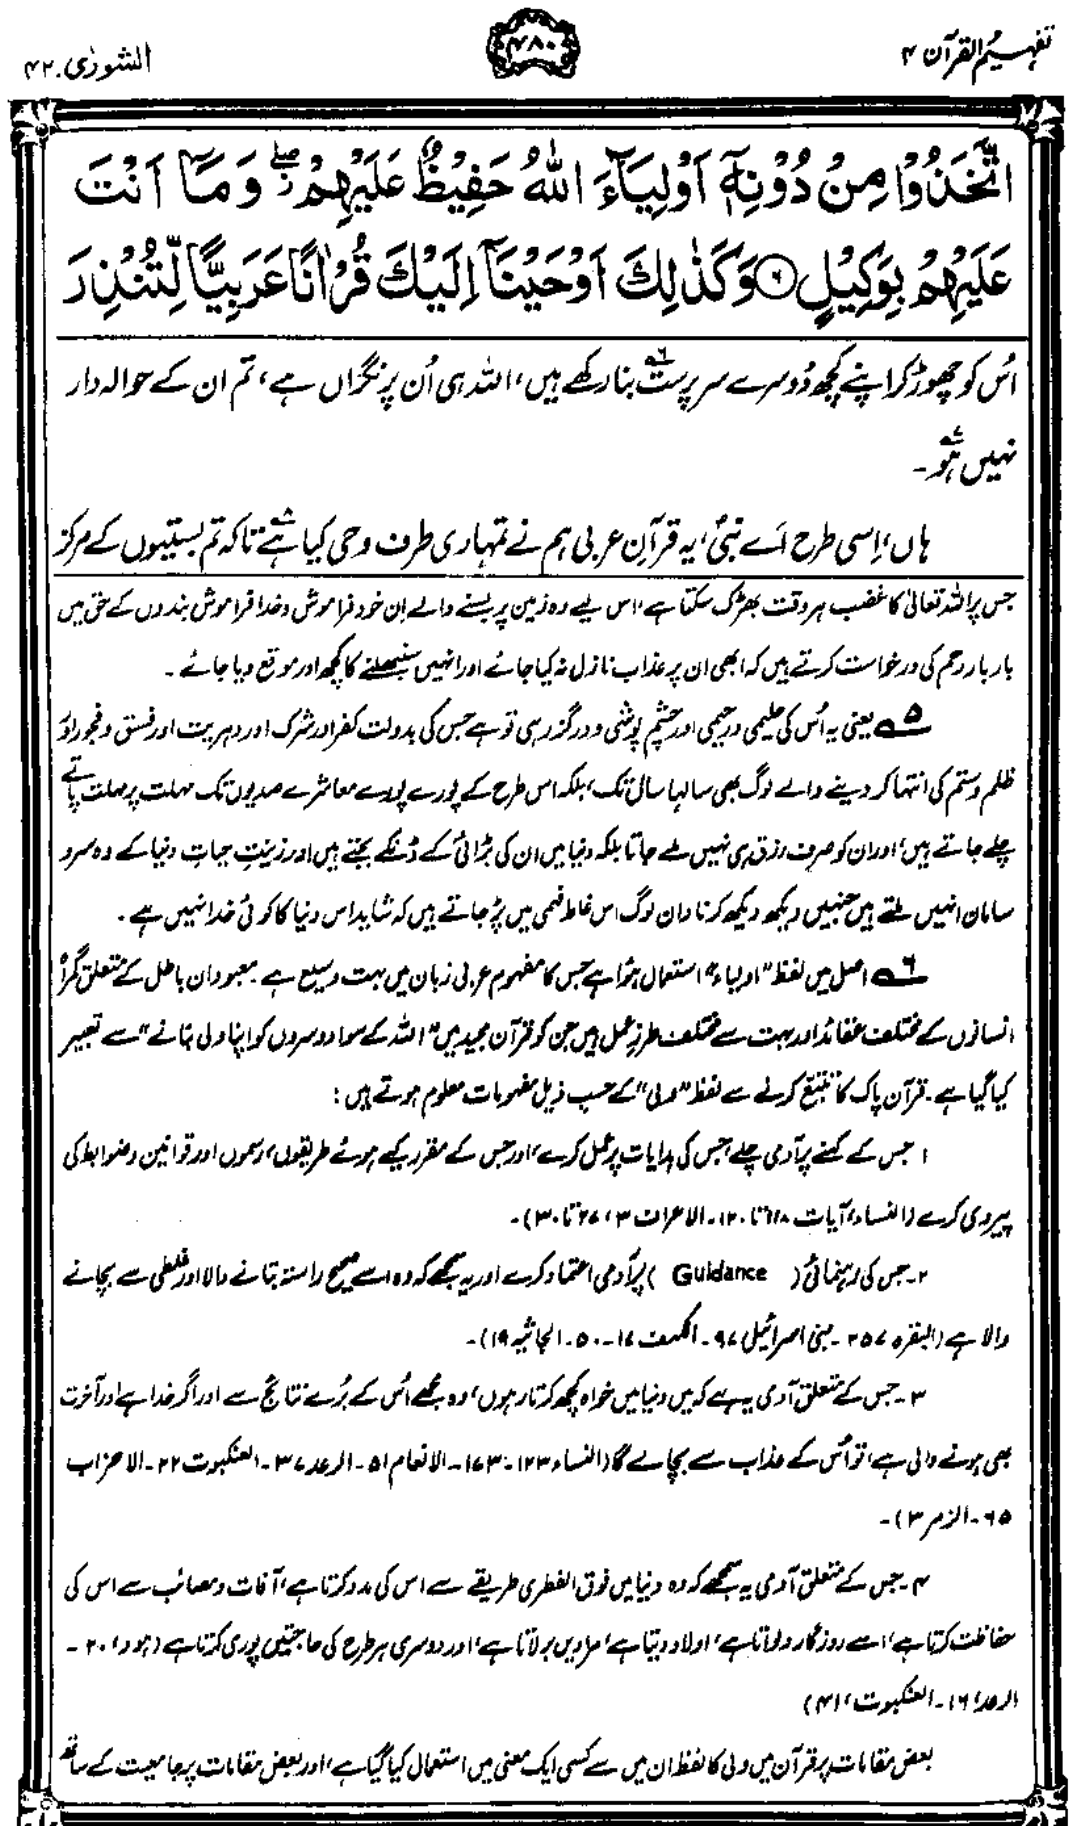 تفہیم القرآن ۴
۴۸۰
الشورٰی ۴۲
اتَّخَذُوْا مِنْ دُوْنِهٖٓ اَوْلِيَآءَ اللّٰهُ حَفِيْظٌ عَلَيْهِمْ ۖ وَمَآ اَنْتَ
عَلَيْهِمْ بِوَكِيْلٍ ۶ وَكَذٰلِكَ اَوْحَيْنَآ اِلَيْكَ قُرْاٰنًا عَرَبِيًّا لِّتُنْذِرَ
اُس کو چھوڑ کر اپنے کچھ دُوسرے سرپرست ۶ بنا رکھے ہیں، اللہ ہی اُن پر نگراں ہے، تم ان کے حوالہ دار
نہیں ہو ۷۔
ہاں، اِسی طرح اَے نبیؐ، یہ قرآنِ عربی ہم نے تمہاری طرف وحی کیا ہے ۸ تاکہ تم بستیوں کے مرکز
جس پر اللہ تعالیٰ کا غضب ہر وقت بھڑک سکتا ہے، اس لیے وہ زمین پر بسنے والے اِن خود فراموش و خدا فراموش بندوں کے حق میں
بار بار رحم کی درخواست کرتے ہیں کہ ابھی ان پر عذاب نازل نہ کیا جائے اور انہیں سنبھلنے کا کچھ اور موقع دیا جائے ۔
۵ یعنی یہ اُس کی حلیمی و رحیمی اور چشم پوشی و درگزر ہی تو ہے جس کی بدولت کفر اور شرک اور دہریت اور فسق و فجور اور
ظلم و ستم کی انتہا کر دینے والے لوگ بھی سالہا سال تک، بلکہ اس طرح کے پورے پورے معاشرے صدیوں تک مہلت پر مہلت پاتے
چلے جاتے ہیں، اور ان کو صرف رزق ہی نہیں ملے جاتا بلکہ دنیا میں ان کی بڑائی کے ڈنکے بجتے ہیں اور زینتِ حیاتِ دنیا کے وہ سرو
سامان انہیں ملتے ہیں جنہیں دیکھ دیکھ کر نادان لوگ اس غلط فہمی میں پڑ جاتے ہیں کہ شاید اس دنیا کا کوئی خدا نہیں ہے ۔
۶ اصل میں لفظ "اولیاء" استعمال ہوا ہے جس کا مفہوم عربی زبان میں بہت وسیع ہے ۔ معبودان باطل کے متعلق گمراہ
انسانوں کے مختلف عقائد اور بہت سے مختلف طرزِ عمل ہیں جن کو قرآن مجید میں "اللہ کے سوا دوسروں کو اپنا ولی بنانے" سے تعبیر
کیا گیا ہے ۔ قرآن پاک کا تتبع کرنے سے لفظ "ولی" کے حسب ذیل مفہومات معلوم ہوتے ہیں :
۱ جس کے کہنے پر آدمی چلے، جس کی ہدایات پر عمل کرے، اور جس کے مقرر کیے ہوئے طریقوں، رسموں اور قوانین و ضوابط کی
پیروی کرے (النساء، آیات ۱۱۸ تا ۱۲۰۔ الاعراف ۳، ۲۷ تا ۳۰)۔
۲۔ جس کی رہنمائی ( Guidance ) پر آدمی اعتماد کرے اور یہ سمجھے کہ وہ اسے صحیح راستہ بتانے والا اور غلطی سے بچانے
والا ہے (البقرہ ۲۵۷۔ بنی اسرائیل ۹۷۔ الکہف ۱۷۔۵۰۔ الجاثیہ ۱۹)۔
۳۔ جس کے متعلق آدمی یہ سمجھے کہ میں دنیا میں خواہ کچھ کرتا رہوں، وہ مجھے اُس کے بُرے نتائج سے اور اگر خدا ہے اور آخرت
بھی ہونے والی ہے، تو اُس کے عذاب سے بچا لے گا (النساء ۱۲۳۔۱۷۳۔ الانعام ۵۱۔ الرعد ۳۷۔ العنکبوت ۲۲۔ الاحزاب
۶۵۔ الزمر ۳)۔
۴۔ جس کے متعلق آدمی یہ سمجھے کہ وہ دنیا میں فوق الفطری طریقے سے اس کی مدد کرتا ہے، آفات و مصائب سے اس کی
حفاظت کرتا ہے، اسے روزگار دلواتا ہے، اولاد دیتا ہے، مرادیں برلاتا ہے، اور دوسری ہر طرح کی حاجتیں پوری کرتا ہے (ہود، ۲۰۔
الرعد، ۱۶۔ العنکبوت، ۴۱)
بعض مقامات پر قرآن میں ولی کا لفظ ان میں سے کسی ایک معنی میں استعمال کیا گیا ہے، اور بعض مقامات پر جامعیت کے ساتھ